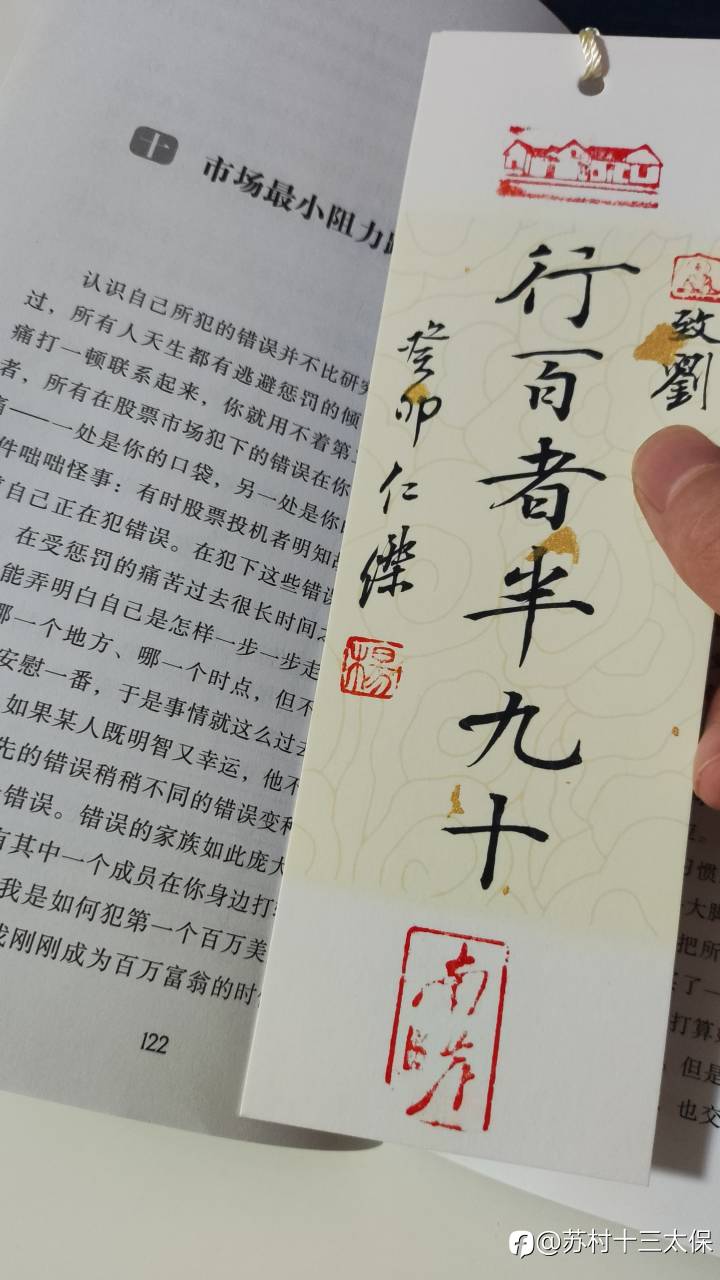 十 市场最小阻力
认识自己所犯的错误并不比研究
过，所有人天生都有逃避惩罚的倾
痛打一顿联系起来，你就用不着第二
者，所有在股票市场犯下的错误在你
痛——一处是你的口袋，另一处是你
件咄咄怪事：有时股票投机者明知
自己正在犯错误。在犯下这些错误
在受惩罚的痛苦过去很长时间
能弄明白自己是怎样一步一步走
哪一个地方、哪一个时点，但不
安慰一番，于是事情就这么过去
如果某人既明智又幸运，他不
先的错误稍稍不同的错误变种
错误。错误的家族如此庞大
有其中一个成员在你身边打
我是如何犯第一个百万美
我刚刚成为百万富翁的时
122
致劉
行百者半九十
癸卯仁傑
楊
南
惯
大脚
把所
买了一
打算
但是
也交
@苏村十三太保